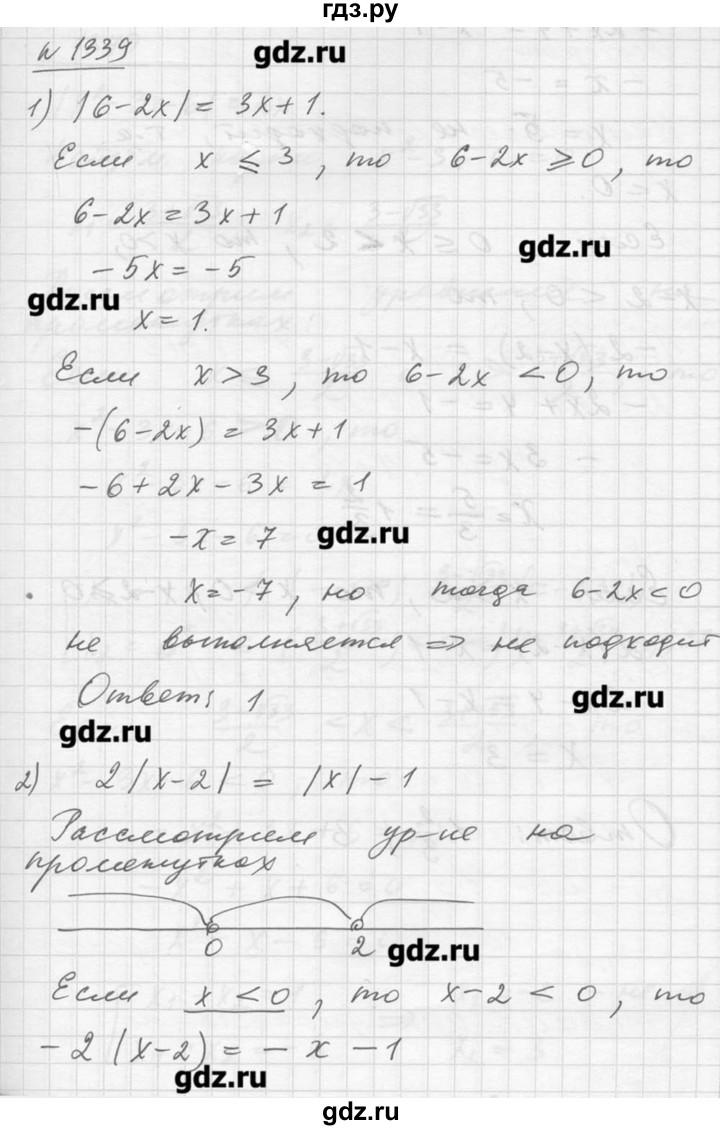 гдз.ру
N 1339
gdz.ru
1) |6-2x| = 3x+1.
Если x ⩽ 3, то 6-2x ⩾ 0, то
6-2x = 3x+1
gdz.ru
-5x = -5
gdz.ru
x = 1.
Если x > 3, то 6-2x < 0, то
-(6-2x) = 3x+1
-6+2x-3x = 1
-x = 7 gdz.ru
x = -7, но тогда 6-2x < 0
не выполняется => не подходит
Ответ: 1 gdz.ru
gdz.ru
2) 2|x-2| = |x|-1
Рассмотрим ур-ие на
промежутках
0 2 gdz.ru
Если x < 0, то x-2 < 0, то
-2(x-2) = -x-1
gdz.ru
gdz.ru